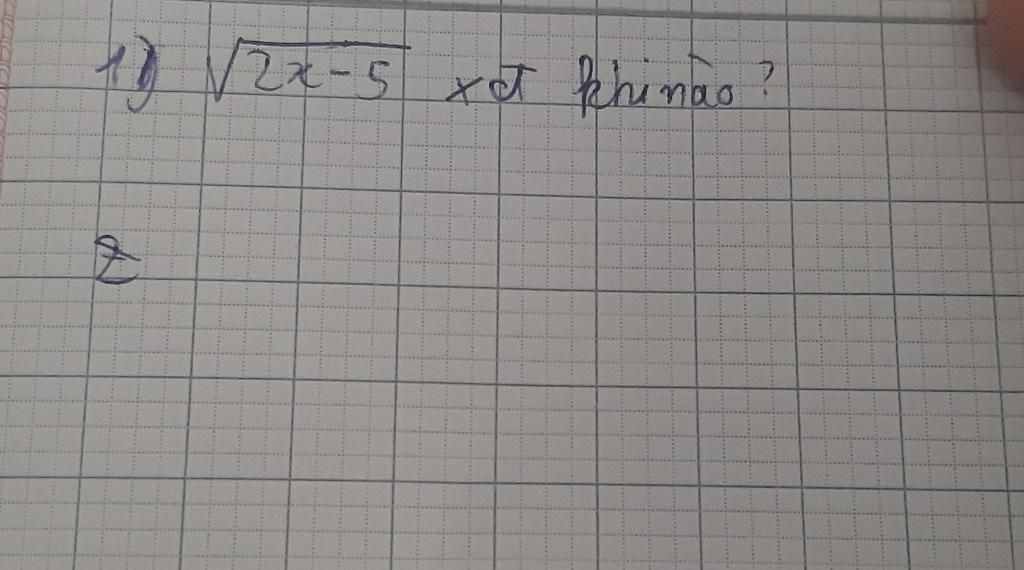 1) √2x-5 xđ khi nào?